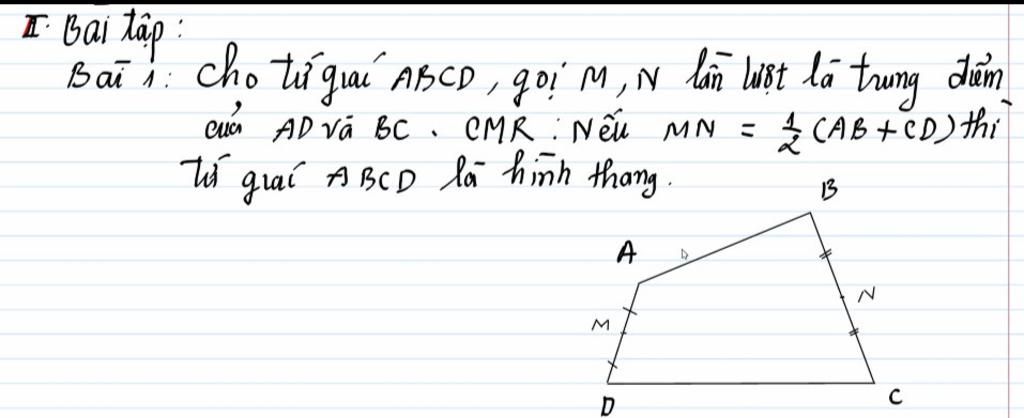 II. Bài tập:
Bài 1: Cho tứ giác ABCD, gọi M, N lần lượt là trung điểm
của AD và BC. CMR: Nếu MN = 1/2 (AB + CD) thì
tứ giác ABCD là hình thang.
B
A
N
M
D
C